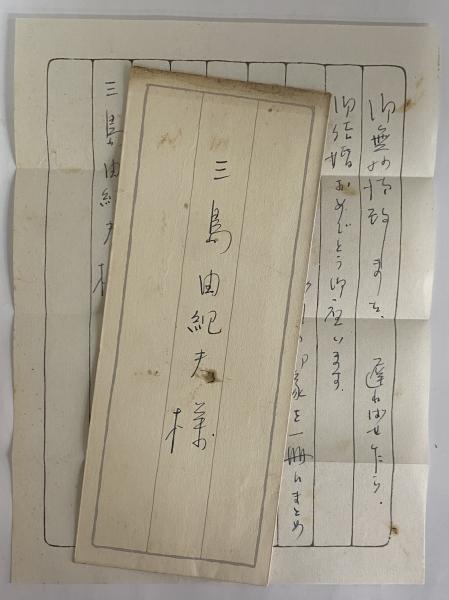 御無沙汰致しました。 遅ればせ乍ら、
御結婚おめでとう御座います。
を一冊にまとめ
三島由紀夫様
三島由紀夫様